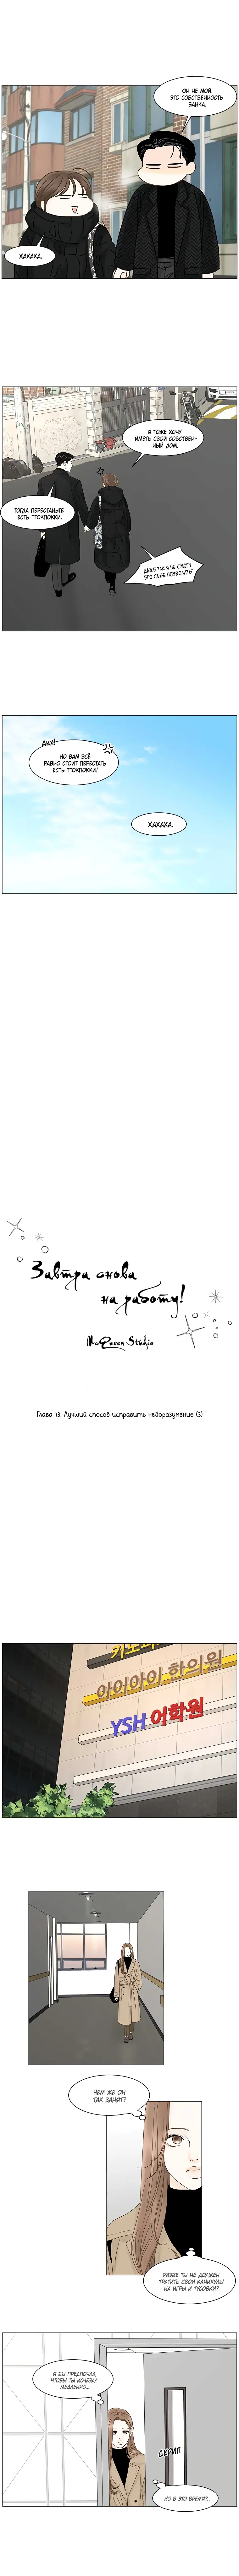 ОН НЕ МОЙ.
ЭТО СОБСТВЕННОСТЬ
БАНКА.
ХАХАХА.
Я ТОЖЕ ХОЧУ
ИМЕТЬ СВОЙ СОБСТВЕН-
НЫЙ ДОМ.
ТОГДА ПЕРЕСТАНЬТЕ
ЕСТЬ ТТОКПОККИ.
ДАЖЕ ТАК Я НЕ СМОГУ
ЕГО СЕБЕ ПОЗВОЛИТЬ!
ДИХ!
НО ВАМ ВСЁ
РАВНО СТОИТ ПЕРЕСТАТЬ
ЕСТЬ ТТОКПОККИ!
ХАХАХА.
Завтра снова
на работу!
McQueen Studio
Глава 13. Лучший способ исправить недоразумение (3)
아이아이 한의원
YSH 어학원
ЧЕМ ЖЕ ОН
ТАК ЗАНЯТ?
РАЗВЕ ТЫ НЕ ДОЛЖЕН
ТРАТИТЬ СВОИ КАНИКУЛЫ
НА ИГРЫ И ТУСОВКИ?
Я БЫ ПРЕДПОЧЛА,
ЧТОБЫ ТЫ ИСЧЕЗАЛ
МЕДЛЕННО...
СКРИП
НО В ЭТО ВРЕМЯ?..